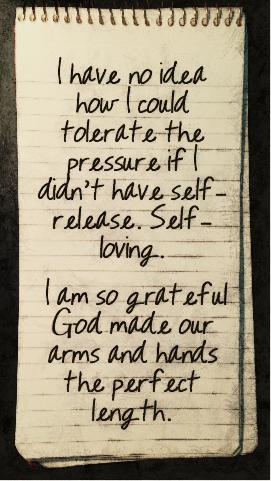 I have no idea
how I could
tolerate the
pressure if I
didn't have self-
release. Self-
loving.
I am so grateful
God made our
arms and hands
the perfect
length.